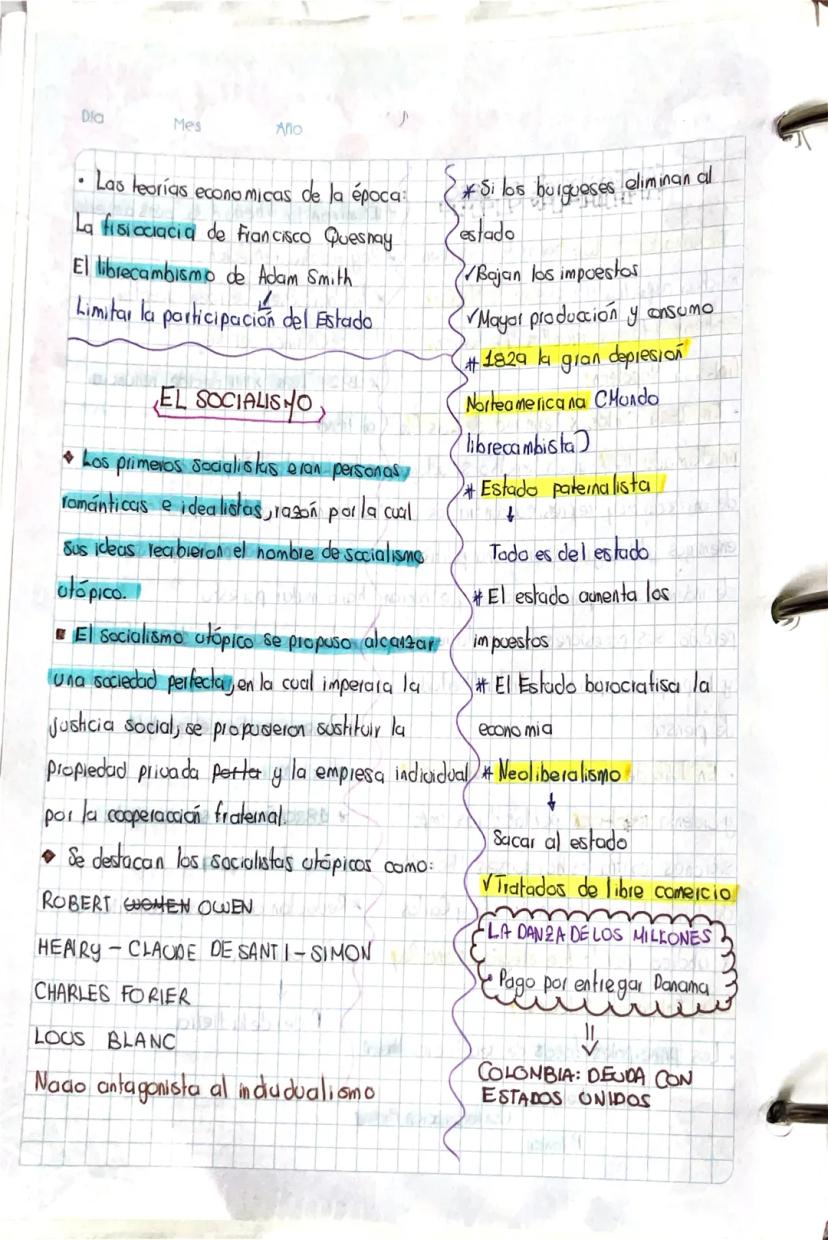 Dia Mes Año
• Las teorías economicas de la época:
La fisiociacia de Francisco Quesnay
El librecambismo de Adam Smith
Limitar la participación del Estado
EL SOCIALISMO
Los primeros socialistas eran personas
románticas e idealistas, razón por la cual
sus ideas recibieron el nombre de socialismo
utópico.
El socialismo utópico se propuso alcanzar
una sociedad perfecta, en la cual imperara la
justicia social, se propusieron sustituir la
propiedad privada y la empresa individual
por la cooperacción fraternal.
Se destacan los socialistas utópicos como:
ROBERT OWEN
HENRY - CLAUDE DE SANTI - SIMON
CHARLES FORIER
LOUS BLANC
Nacio antagonista al indudualismo
* Si los burgueses eliminan al
estado
✓Bajan los impuestos
✓Mayor producción y consumo
* 1829 la gran depresión
Norteamericana (Mundo
librecambista)
* Estado paternalista
↓
Todo es del estado
* El estado aumenta los
impuestos
* El Estado burocratisa la
economia
* Neoliberalismo
↓
Sacar al estado
✓Tratados de libre comercio
LA DANZA DE LOS MILLONES
Pago por entregar Panama
COLONBIA: DEUDA CON
ESTADOS UNIDOS